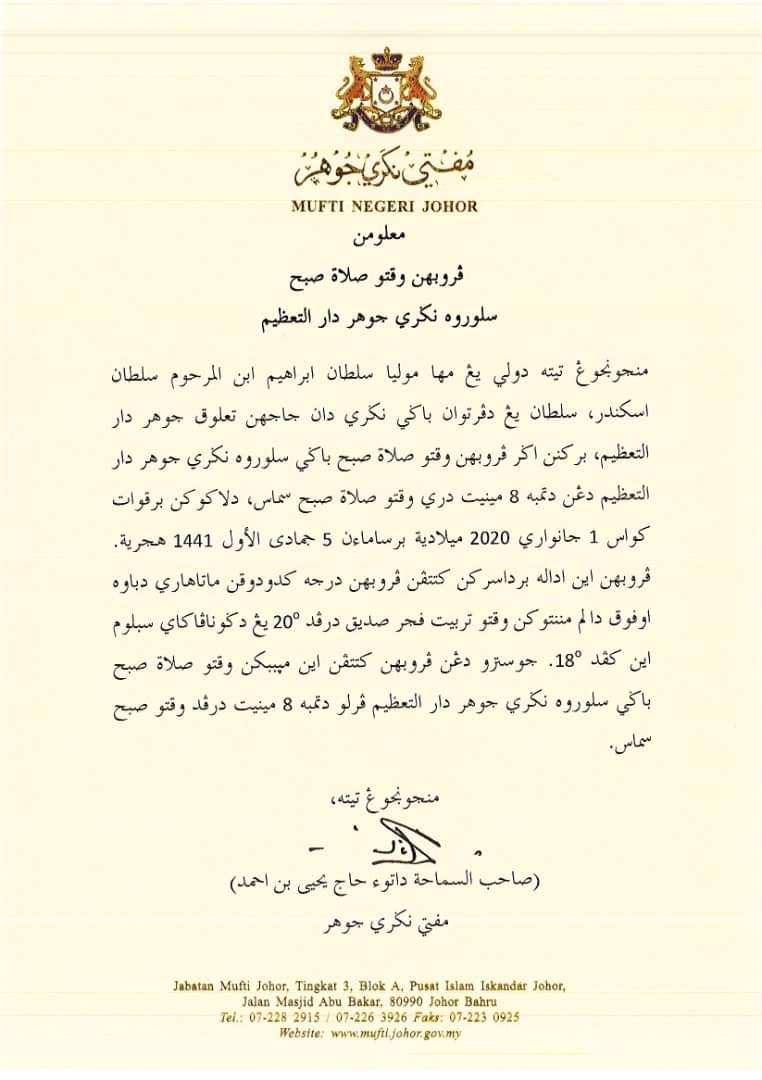 مفتي نڬري جوهر
MUFTI NEGERI JOHOR
معلومن
ڤروبهن وقتو صلاة صبح
سلوروه نڬري جوهر دار التعظيم
منجونجوڠ تيته دولي يڠ مها موليا سلطان ابراهيم ابن المرحوم سلطان
اسكندر، سلطان يڠ دڤرتوان باݢي نݢري دان جاجهن تعلوق جوهر دار
التعظيم، بركنن اݢر ڤروبهن وقتو صلاة صبح باݢي سلوروه نݢري جوهر دار
التعظيم دڠن دتمبه 8 مينيت دري وقتو صلاة صبح سماس، دلاكوكن برقوات
كواس 1 جانواري 2020 ميلادية برساماءن 5 جمادى الأول 1441 هجرية.
ڤروبهن اين اداله برداسركن كتتڤن ڤروبهن درجه كدودوقن ماتاهاري دباوه
اوفوق دالم مننتوكن وقتو تربيت فجر صديق درڤد 20º يڠ دݢوناڤاكاي سبلوم
اين كڤد 18º. جوسترو دڠن ڤروبهن كتتڤن اين مڽببكن وقتو صلاة صبح
باݢي سلوروه نݢري جوهر دار التعظيم ڤرلو دتمبه 8 مينيت درڤد وقتو صبح
سماس.
منجونجوڠ تيته،
(صاحب السماحة داتوء حاج يحيى بن احمد)
مفتي نݢري جوهر
Jabatan Mufti Johor, Tingkat 3, Blok A, Pusat Islam Iskandar Johor,
Jalan Masjid Abu Bakar, 80990 Johor Bahru
Tel.: 07-228 2915 / 07-226 3926 Faks: 07-223 0925
Website: www.mufti.johor.gov.my